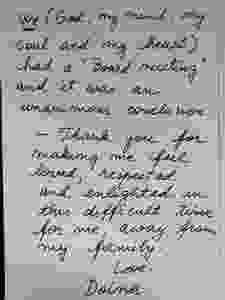 we (God, my mind, my
soul and my heart)
had a "Board meeting"
and it was an
unanimous conclusion
– Thank you for
making me feel
loved, respected
and enlighted in
this difficult time
for me, away from
my family.
Love.
Doina